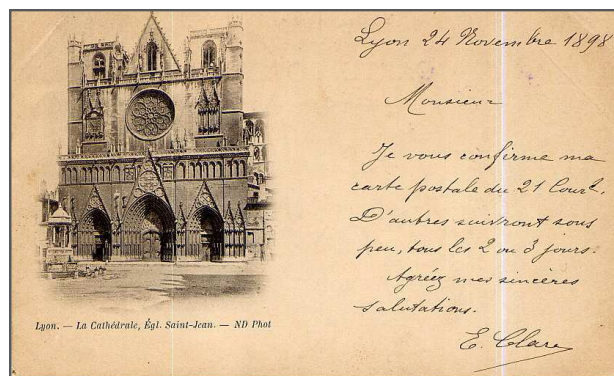 Lyon 24 Novembre 1898
Monsieur
Je vous confirme ma
carte postale du 21 Cour<sup>t</sup>.
D'autres suivront sous
peu, tous les 2 ou 3 jours.
Agréez mes sincères
salutations.
E. Clare
Lyon. — La Cathédrale, Égl. Saint-Jean. — ND Phot